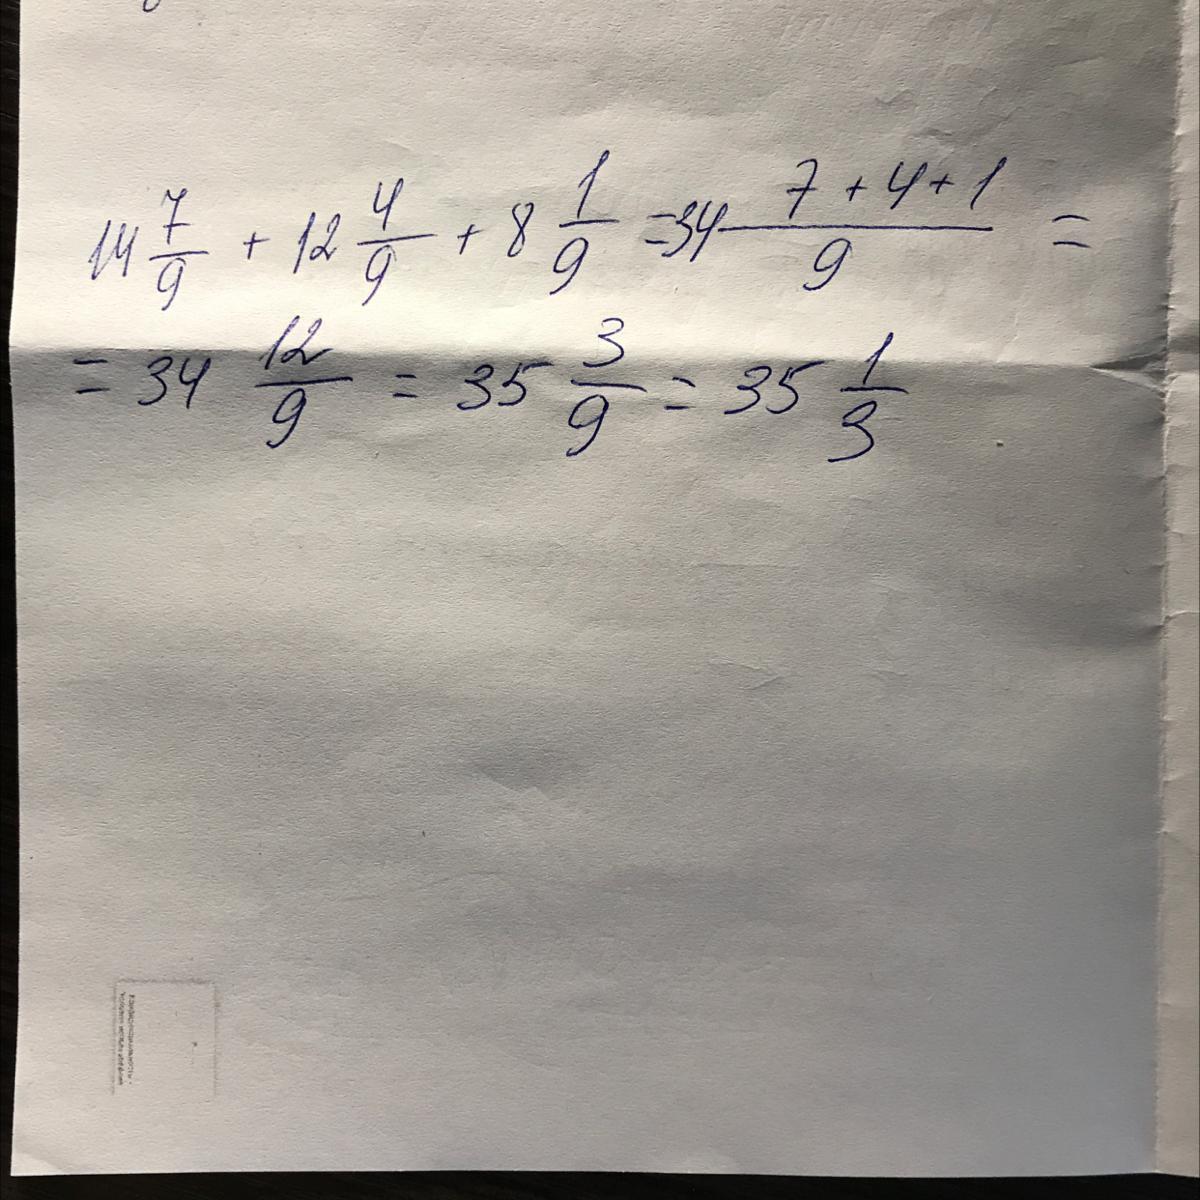 14 7/9 + 12 4/9 + 8 1/9 = 34 (7 + 4 + 1)/9 =
= 34 12/9 = 35 3/9 = 35 1/3